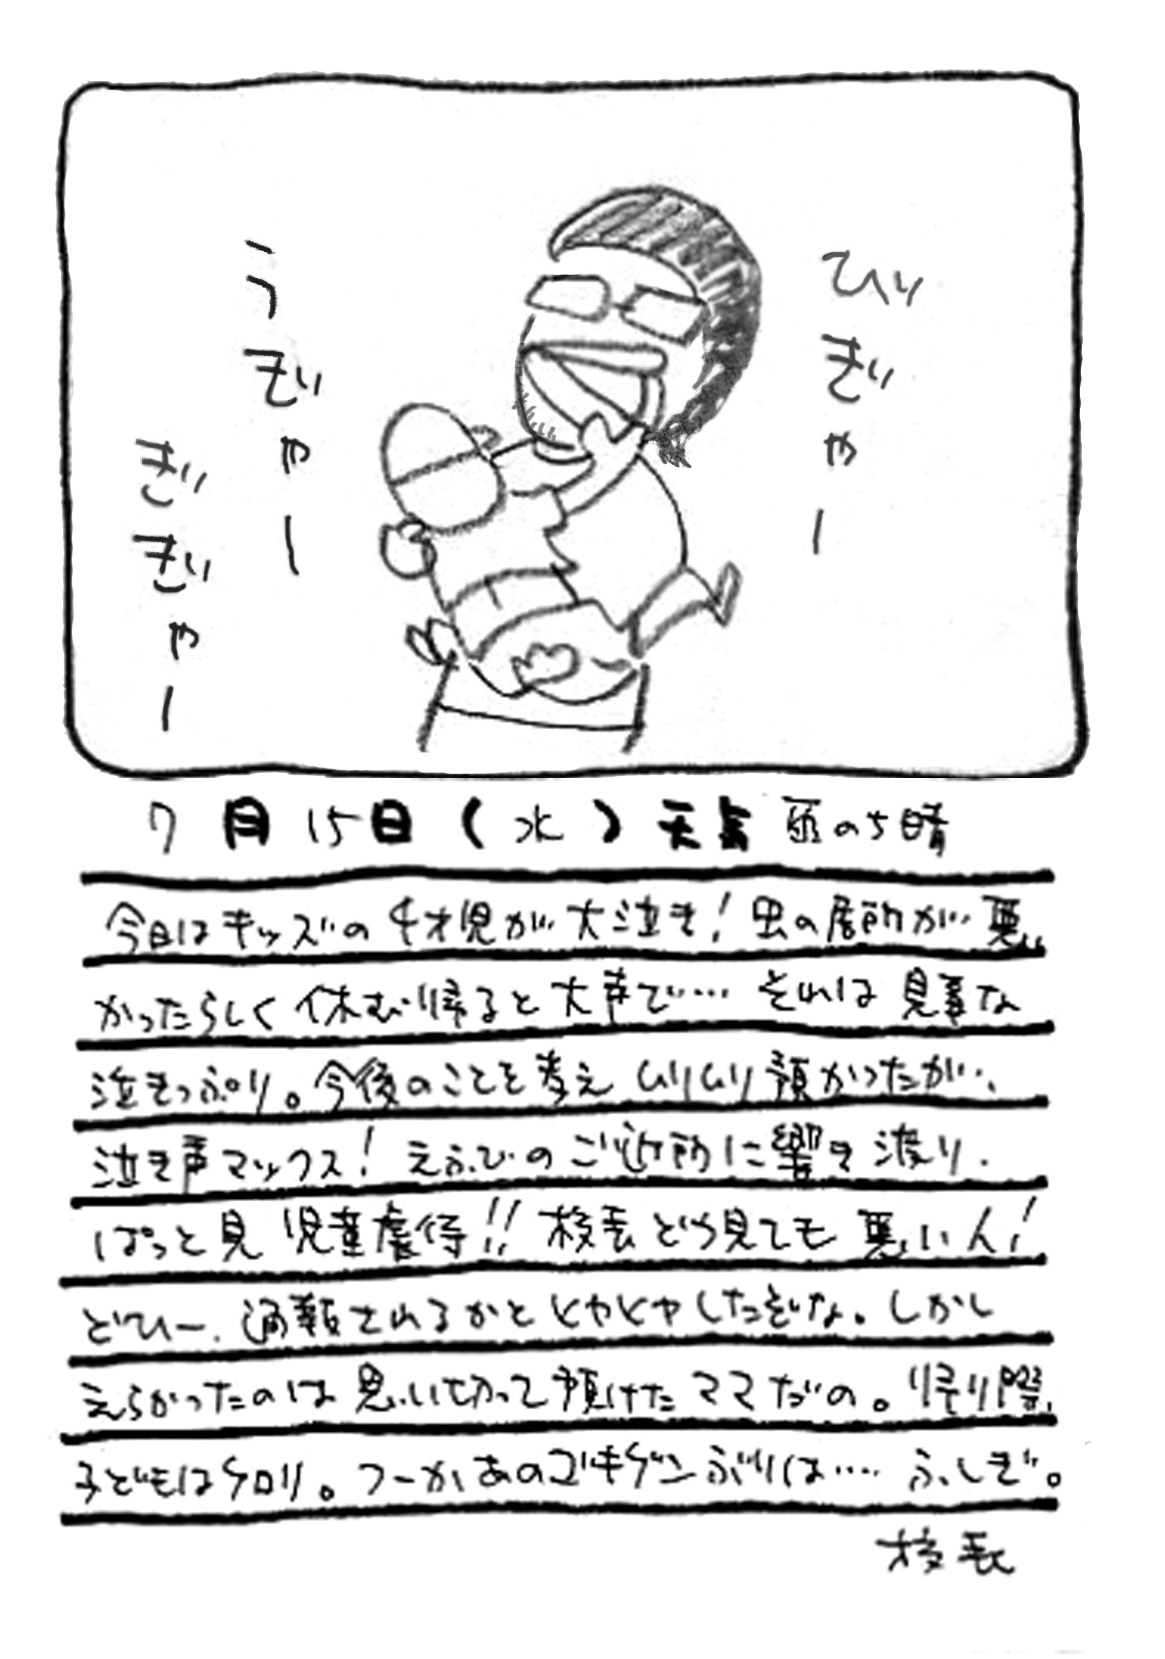 ひぃ
ぎぃ
ゃ
ー
う
ぎぃ
ゃ
ー
ぎぃ
ぎぃ
ゃ
ー
7月15日(水)天気 雨のち晴
今日はキッズの4才児が大泣き!虫の居所が悪
かったらしく休む帰ると大声で…それは見事な
泣きっぷり。今後のことを考えムリムリ預かったが、
泣き声マックス!えふびのご近所に響き渡り、
ぱっと見児童虐待!!校長どう見ても悪い人!
どひー、通報されるかとヒヤヒヤしたぞな。しかし
えらかったのは思い切って預けたママだの。帰り際、
子どもはケロリ。つーかあのゴキゲンぶりは…ふしぎ。
校長